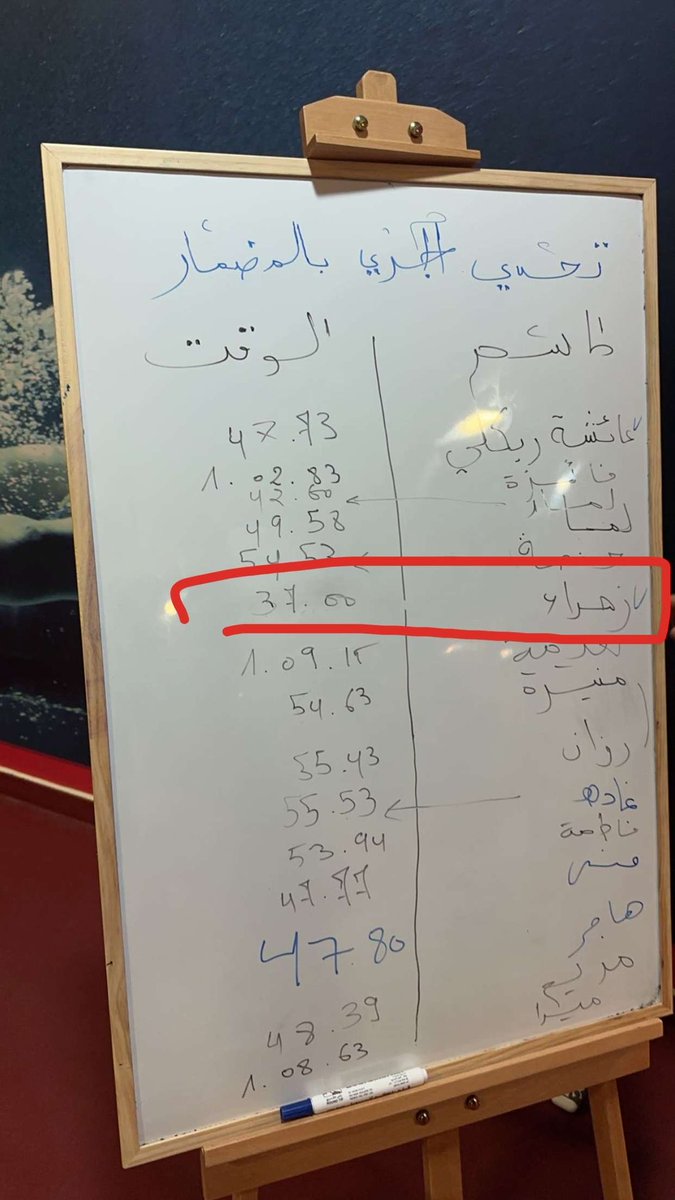 تحدي الجري بالمضمار
الاسم الوقت
عائشة ريكلي 47.73
فائزة 1.02.83
لمار 42.60
لمسا 49.58
54.53
زهراء 37.00
1.09.15
منيرة 54.63
روان 55.43
غاده 55.53
فاطمة 53.94
منى 47.77
هاجر 47.80
مريم 48.39
ميرا 1.08.63